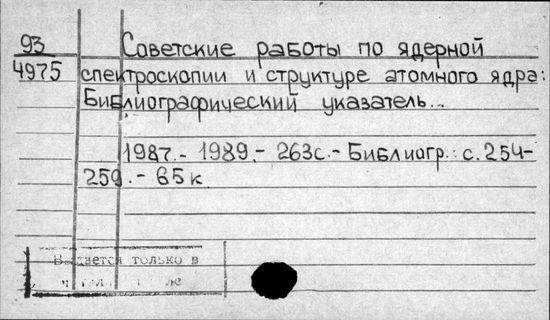 93
4975
Советские работы по ядерной
спектроскопии и структуре атомного ядра:
Библиографический указатель...
1987.- 1989.- 263с.- Библиогр.: с.254-
259.- 65к.
только в